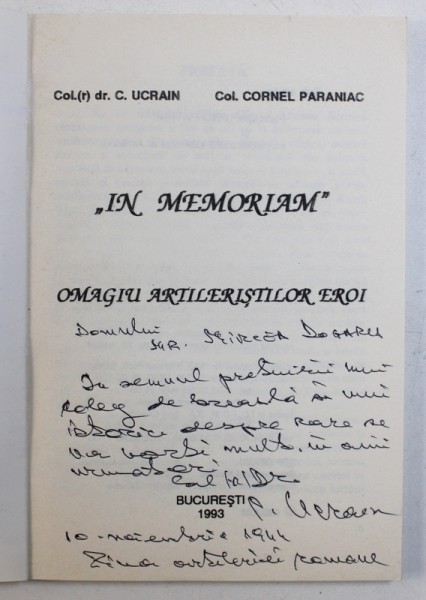 Col.(r) dr. C. UCRAIN Col. CORNEL PARANIAC
„IN MEMORIAM”
OMAGIU ARTILERIȘTILOR EROI
Domnului
MIRCEA DOGARU
În semnul prețuirii unui
coleg de breaslă și unui
istoric despre care se
va vorbi mult în anii
următori
Col (r) Dr.
BUCUREȘTI
1993
C. Ucrain
10 noiembrie 1944
Ziua artileriei romane